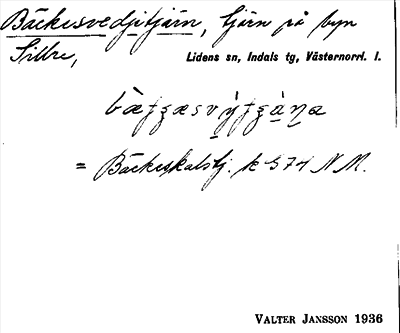 Bäckesvedjitjärn, tjärn på byn
Sillre, Lidens sn, Indals tg, Västernorrl. l.
= Bäckeskalstj. k 574 N M.
VALTER JANSSON 1936